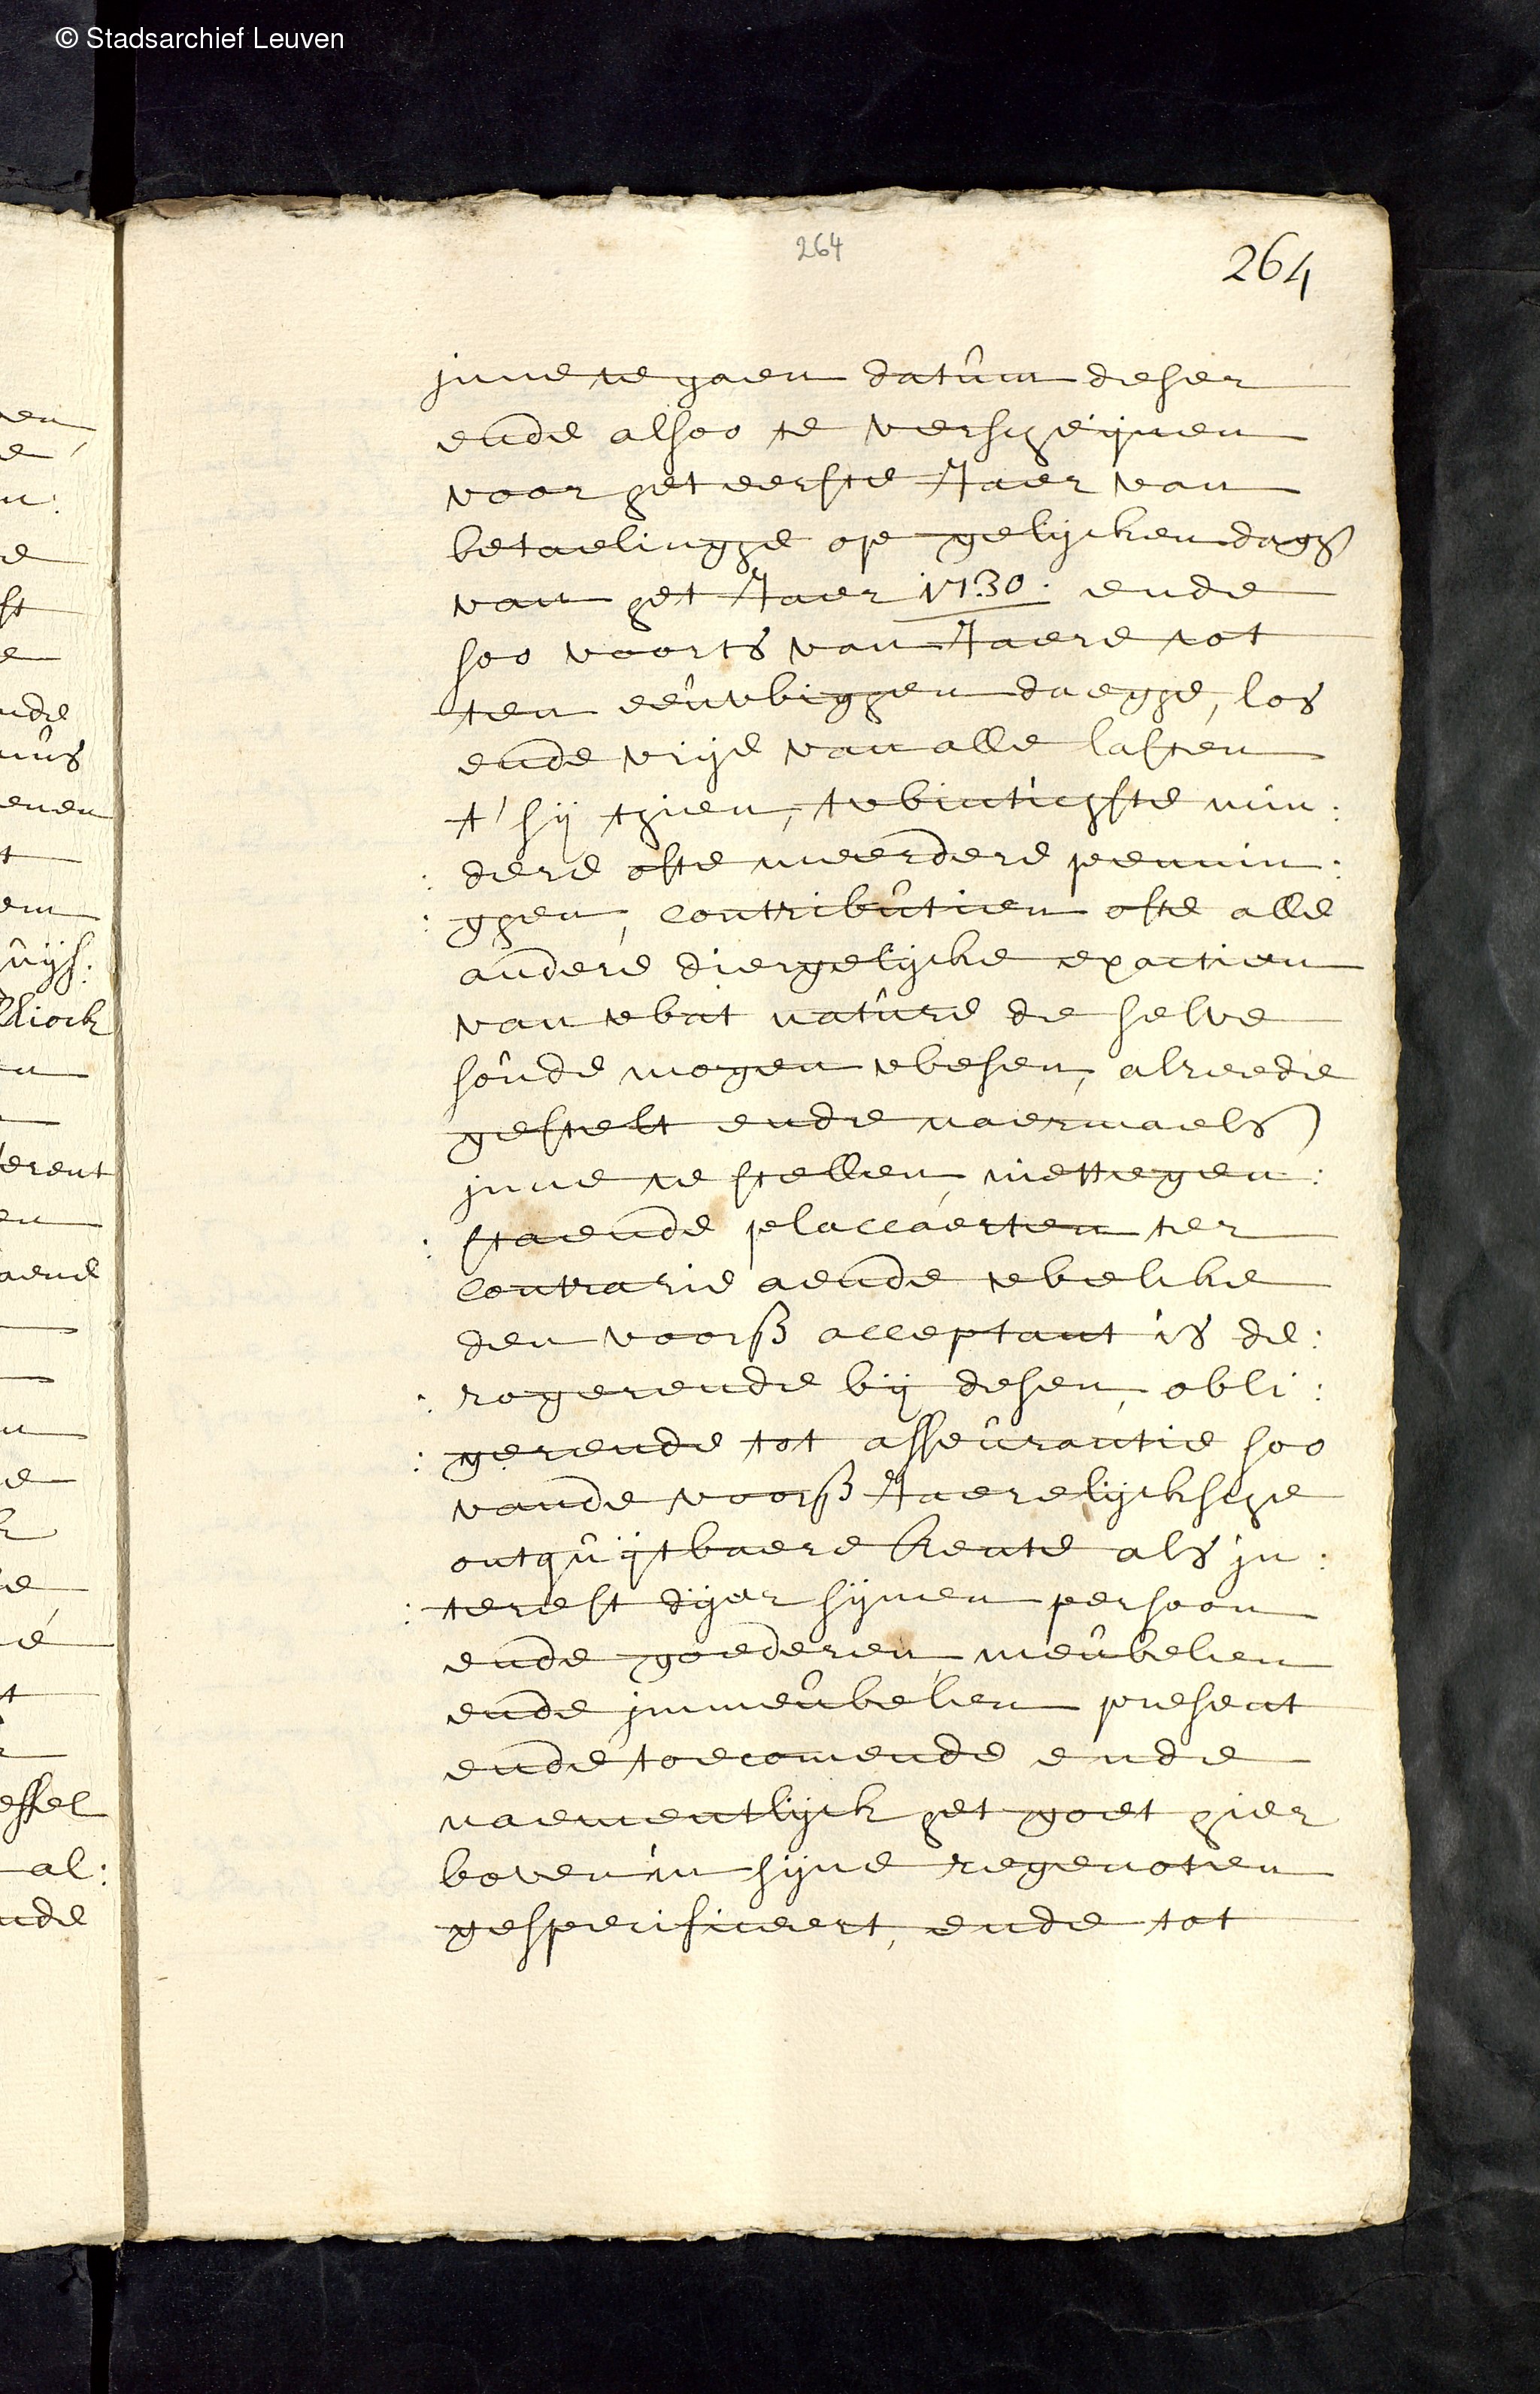 © Stadsarchief Leuven
264
264
inne te gaen datûm deser
ende alsoo te verscheijnen
voor het eerste Jaer van
betaelinghe op gelijcken dagh
van het Jaer 1730. ende
soo voorts van Jaere tot
ten eeûwbighen daeghe, los
ende vrije van alle lasten
t' sij thien, twbintichste min:
:dere ofte meerdere pennin:
:ghen, contribûtien ofte alle
andere diergelijcke exactien
van wbat natûre de selve
soûde mogen wbesen, alreede
gestelt ende naermaels
inne te stellen, niettegen:
:staende placcaerten ter
contrarie aende wbelcke
den voorß acceptant is de:
:rogerende bij desen, obli:
:gerende tot asseûrantie soo
vande voorß Jaerelijcksche
ontqûijtbaere Rente als in:
:terest dijer sijnen persoon
ende goederen, meûbelen
ende immeûbelen present
ende toecomende ende
naementlijck het goet hier
boven in sijne regenoten
gespecificeert, ende tot